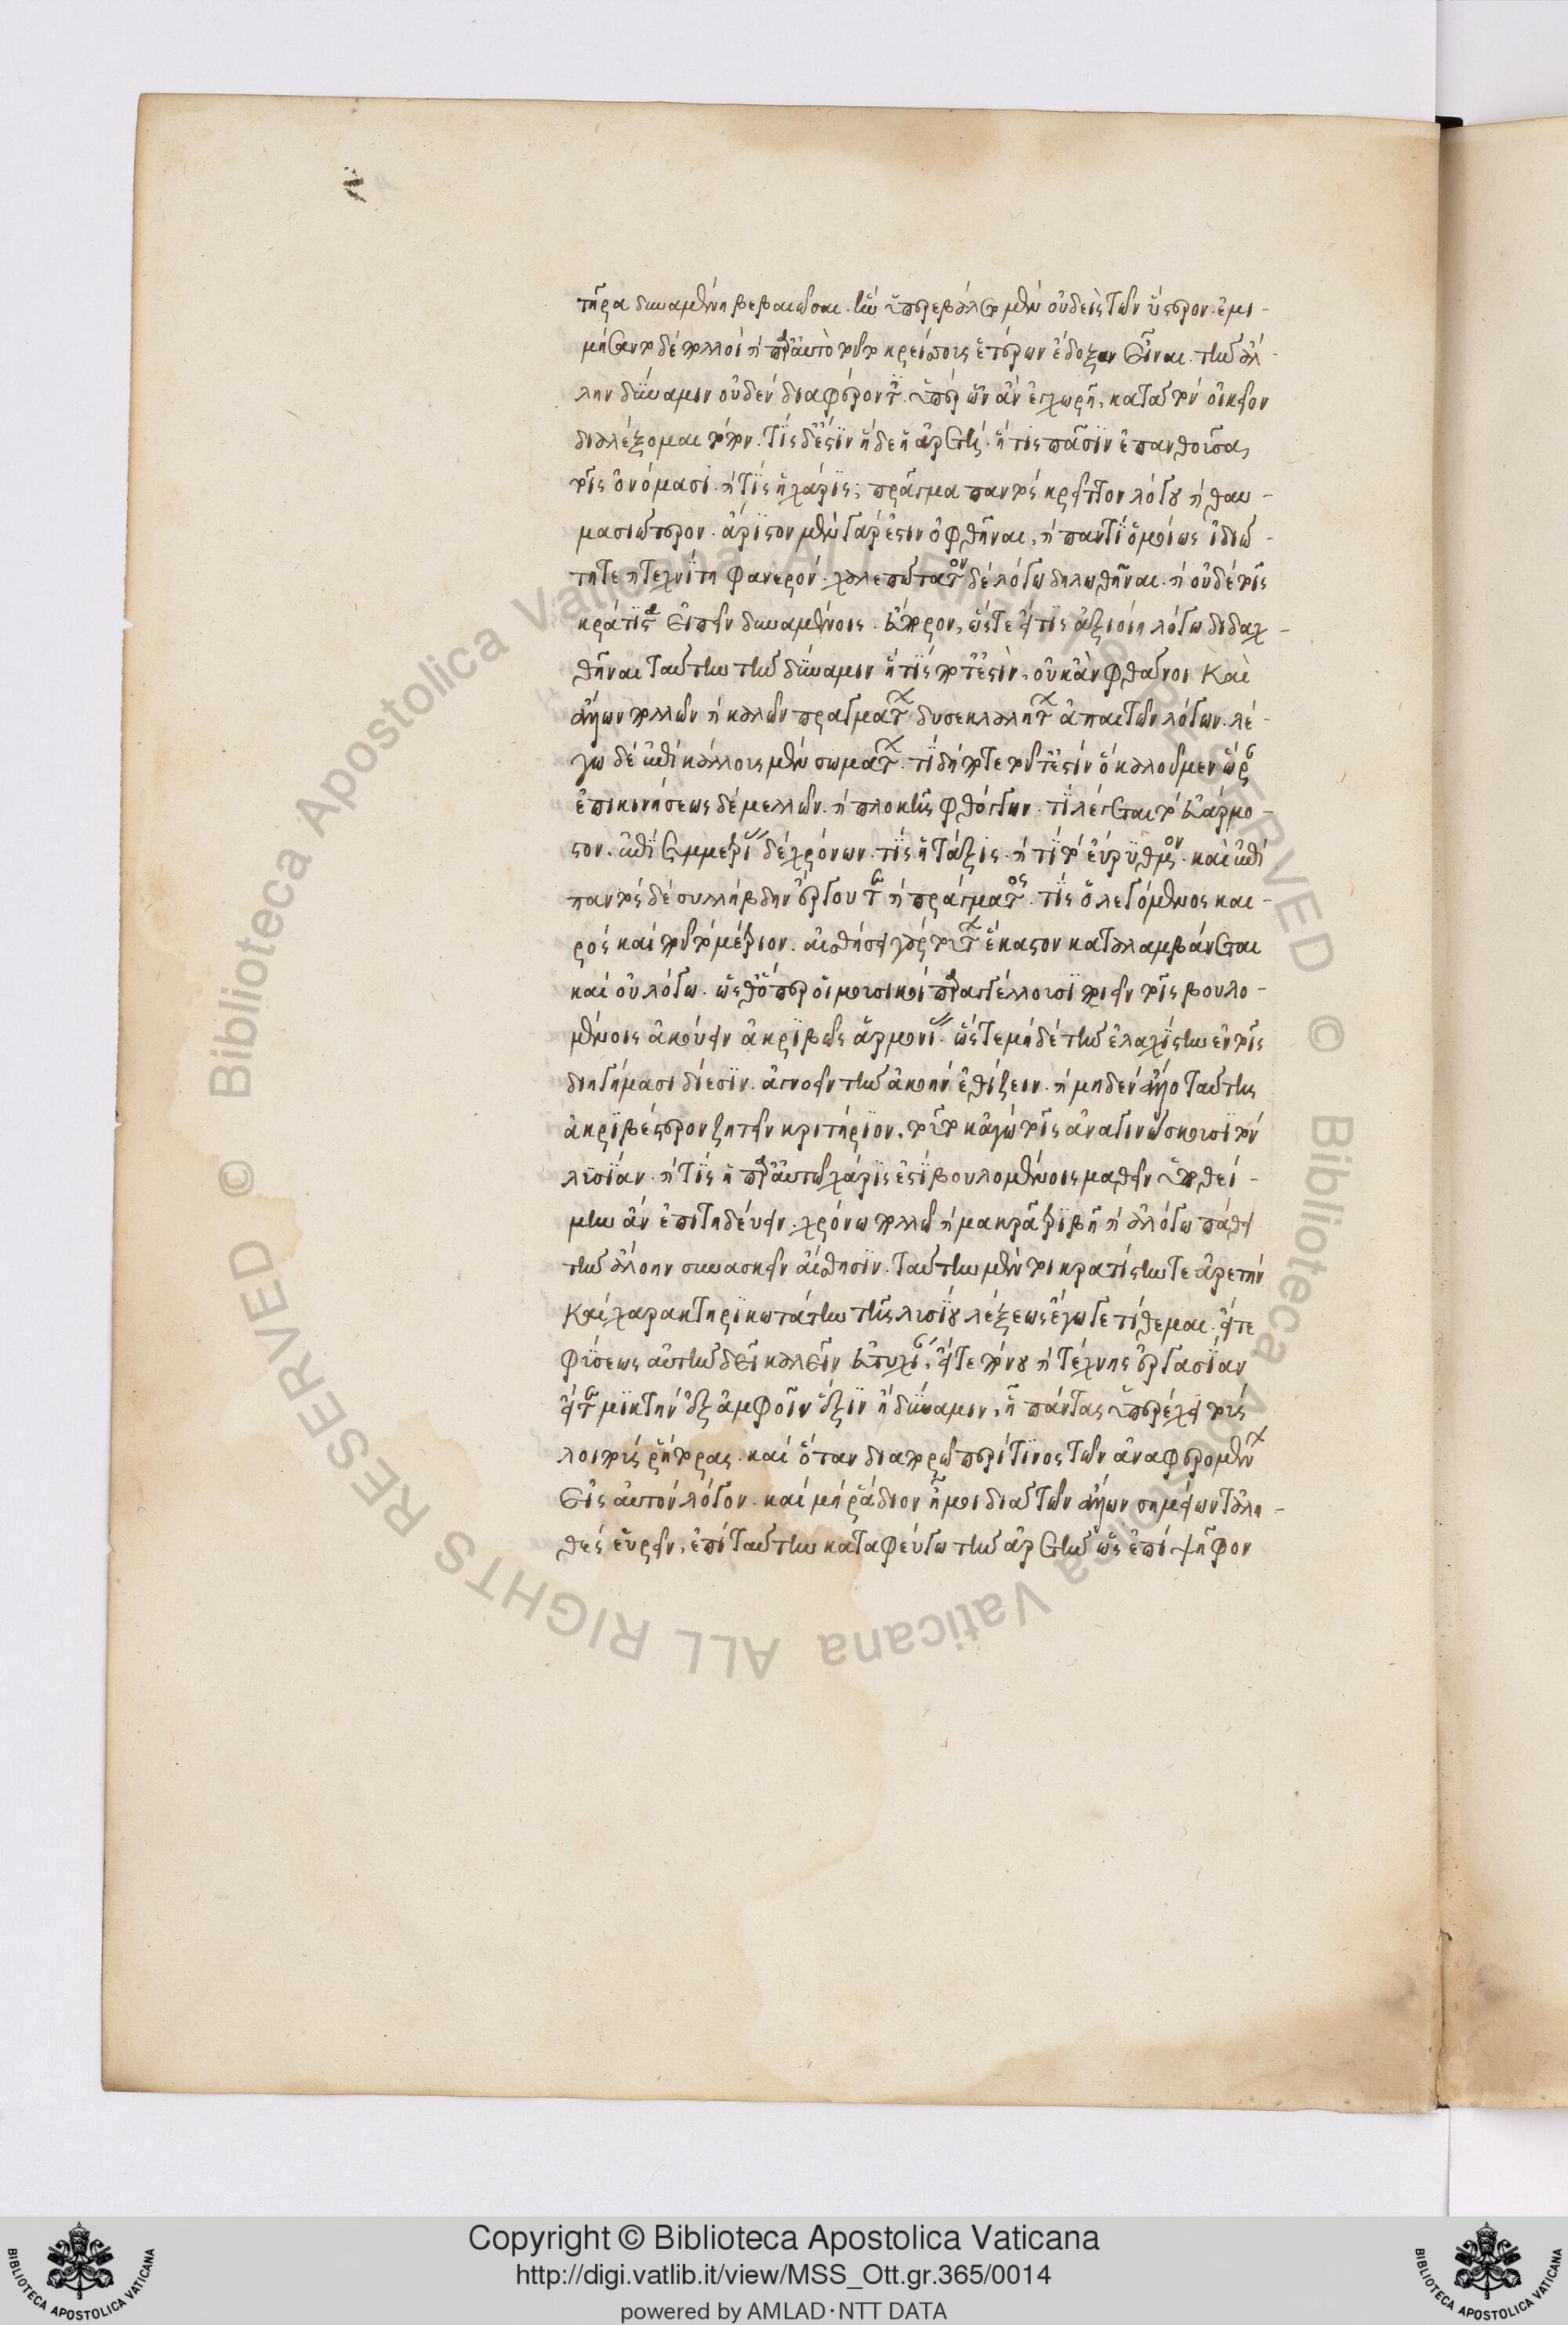 τῆρα δυναμένη βεβαιῶσαι. ἣν ὑπερεβάλετο μὲν οὐδεὶς τῶν ὕστερον. ἐμι-
μήσαντο δὲ πολλοί καὶ παρ' αὐτὸ τοῦτο κρείττους ἑτέρων ἔδοξαν εἶναι. τὴν ἄλ-
λην δύναμιν οὐδὲν διαφέροντες. ὑπὲρ ὧν ἂν ἐγχωρῇ, κατὰ τὸν οἰκεῖον
διαλέξομαι τόπον. τίς δ' ἐστὶν ἥδε ἡ ἀρετή. ἥτις πᾶσιν ἐπανθοῦσα
τοῖς ὀνόμασι. καὶ τίς ἡ χάρις; πρᾶγμα παντὸς κρεῖττον λόγου καὶ θαυ-
μασιώτερον. ἄριστον μὲν γάρ ἐστιν ὀφθῆναι, καὶ παντὶ ὁμοίως ἰδιώ-
τῃ τε καὶ τεχνίτῃ φανερόν. χαλεπώτατον δὲ λόγῳ δηλωθῆναι. καὶ οὐδὲ τοῖς
κράτιστα εἰπεῖν δυναμένοις εὔπορον, ὥστε εἴ τις ἀξιοίη λόγῳ διδαχ-
θῆναι ταύτην τὴν δύναμιν ἥτις ποτ' ἐστὶν, οὐκ ἂν φθάνοι καὶ
ἄλλων πολλῶν καὶ καλῶν πραγμάτων δυσεκλαλήτων ἀπαιτῶν λόγων. λέ-
γω δὲ ἐπὶ κάλλους μὲν σωμάτων. τί δή ποτε τοῦτ' ἐστὶν ὃ καλοῦμεν ὥραν
ἐπὶ κινήσεως δὲ μελῶν. καὶ πλοκῆς φθόγγων. τί λέγεται τὸ εὐάρμο-
στον. ἐπὶ συμμετρίας δὲ χρόνων. τίς ἡ τάξις. καὶ τί τὸ εὔρυθμον. καὶ ἐπὶ
παντὸς δὲ συλλήβδην ἔργου τε καὶ πράγματος. τίς ὁ λεγόμενος και-
ρός καὶ ποῦ τὸ μέτριον. αἰσθήσει γὰρ τούτων ἕκαστον καταλαμβάνεται
καὶ οὐ λόγῳ. ὥσθ' ὅπερ οἱ μουσικοὶ παραγγέλλουσι ποιεῖν τοῖς βουλο-
μένοις ἀκούειν ἀκριβῶς ἁρμονίας. ὥστε μηδὲ τὴν ἐλαχίστην ἐν τοῖς
διηστήμασι δίεσιν. ἀγνοεῖν τὴν ἀκοὴν ἐθίζειν. καὶ μηδὲν ἄλλο ταύτης
ἀκριβέστερον ζητεῖν κριτήριον. τοῦτο κἀγὼ τοῖς ἀναγινώσκουσι τὸν
λυσίαν. καὶ τίς ἡ παρ' αὐτῷ χάρις ἐστὶ βουλομένοις μαθεῖν ὑποθεί-
μην ἂν ἐπιτηδεύειν. χρόνῳ πολλῷ καὶ μακρᾷ τριβῇ καὶ ἀλόγῳ πάθει
τὴν ἄλογον συνασκεῖν αἴσθησιν. ταύτην μέντοι κρατίστην τε ἀρετὴν
καὶ χαρακτηρικωτάτην τῆς λυσίου λέξεως ἔγωγε τίθεμαι. εἴτε
φύσεως αὐτὴν δεῖ καλεῖν εὐτυχίαν, εἴτε πόνου καὶ τέχνης ἐργασίαν
εἴτε μικτὴν ἐξ ἀμφοῖν ἕξιν ἢ δύναμιν, ᾗ πάντας ὑπερέχει τοὺς
λοιποὺς ῥήτορας. καὶ ὅταν διαπορῶ περί τινος τῶν ἀναφερομένων
εἰς αὐτὸν λόγον. καὶ μὴ ῥάδιον ᾖ μοι διὰ τῶν ἄλλων σημείων τἀλη-
θὲς εὑρεῖν, ἐπὶ ταύτην καταφεύγω τὴν ἀρετὴν ὡς ἐπὶ ψῆφον
Copyright © Biblioteca Apostolica Vaticana
http://digi.vatlib.it/view/MSS_Ott.gr.365/0014
powered by AMLAD·NTT DATA
BIBLIOTECA APOSTOLICA VATICANA
BIBLIOTECA APOSTOLICA VATICANA
© Biblioteca Apostolica Vaticana ALL RIGHTS RESERVED © Biblioteca Apostolica Vaticana ALL RIGHTS RESERVED